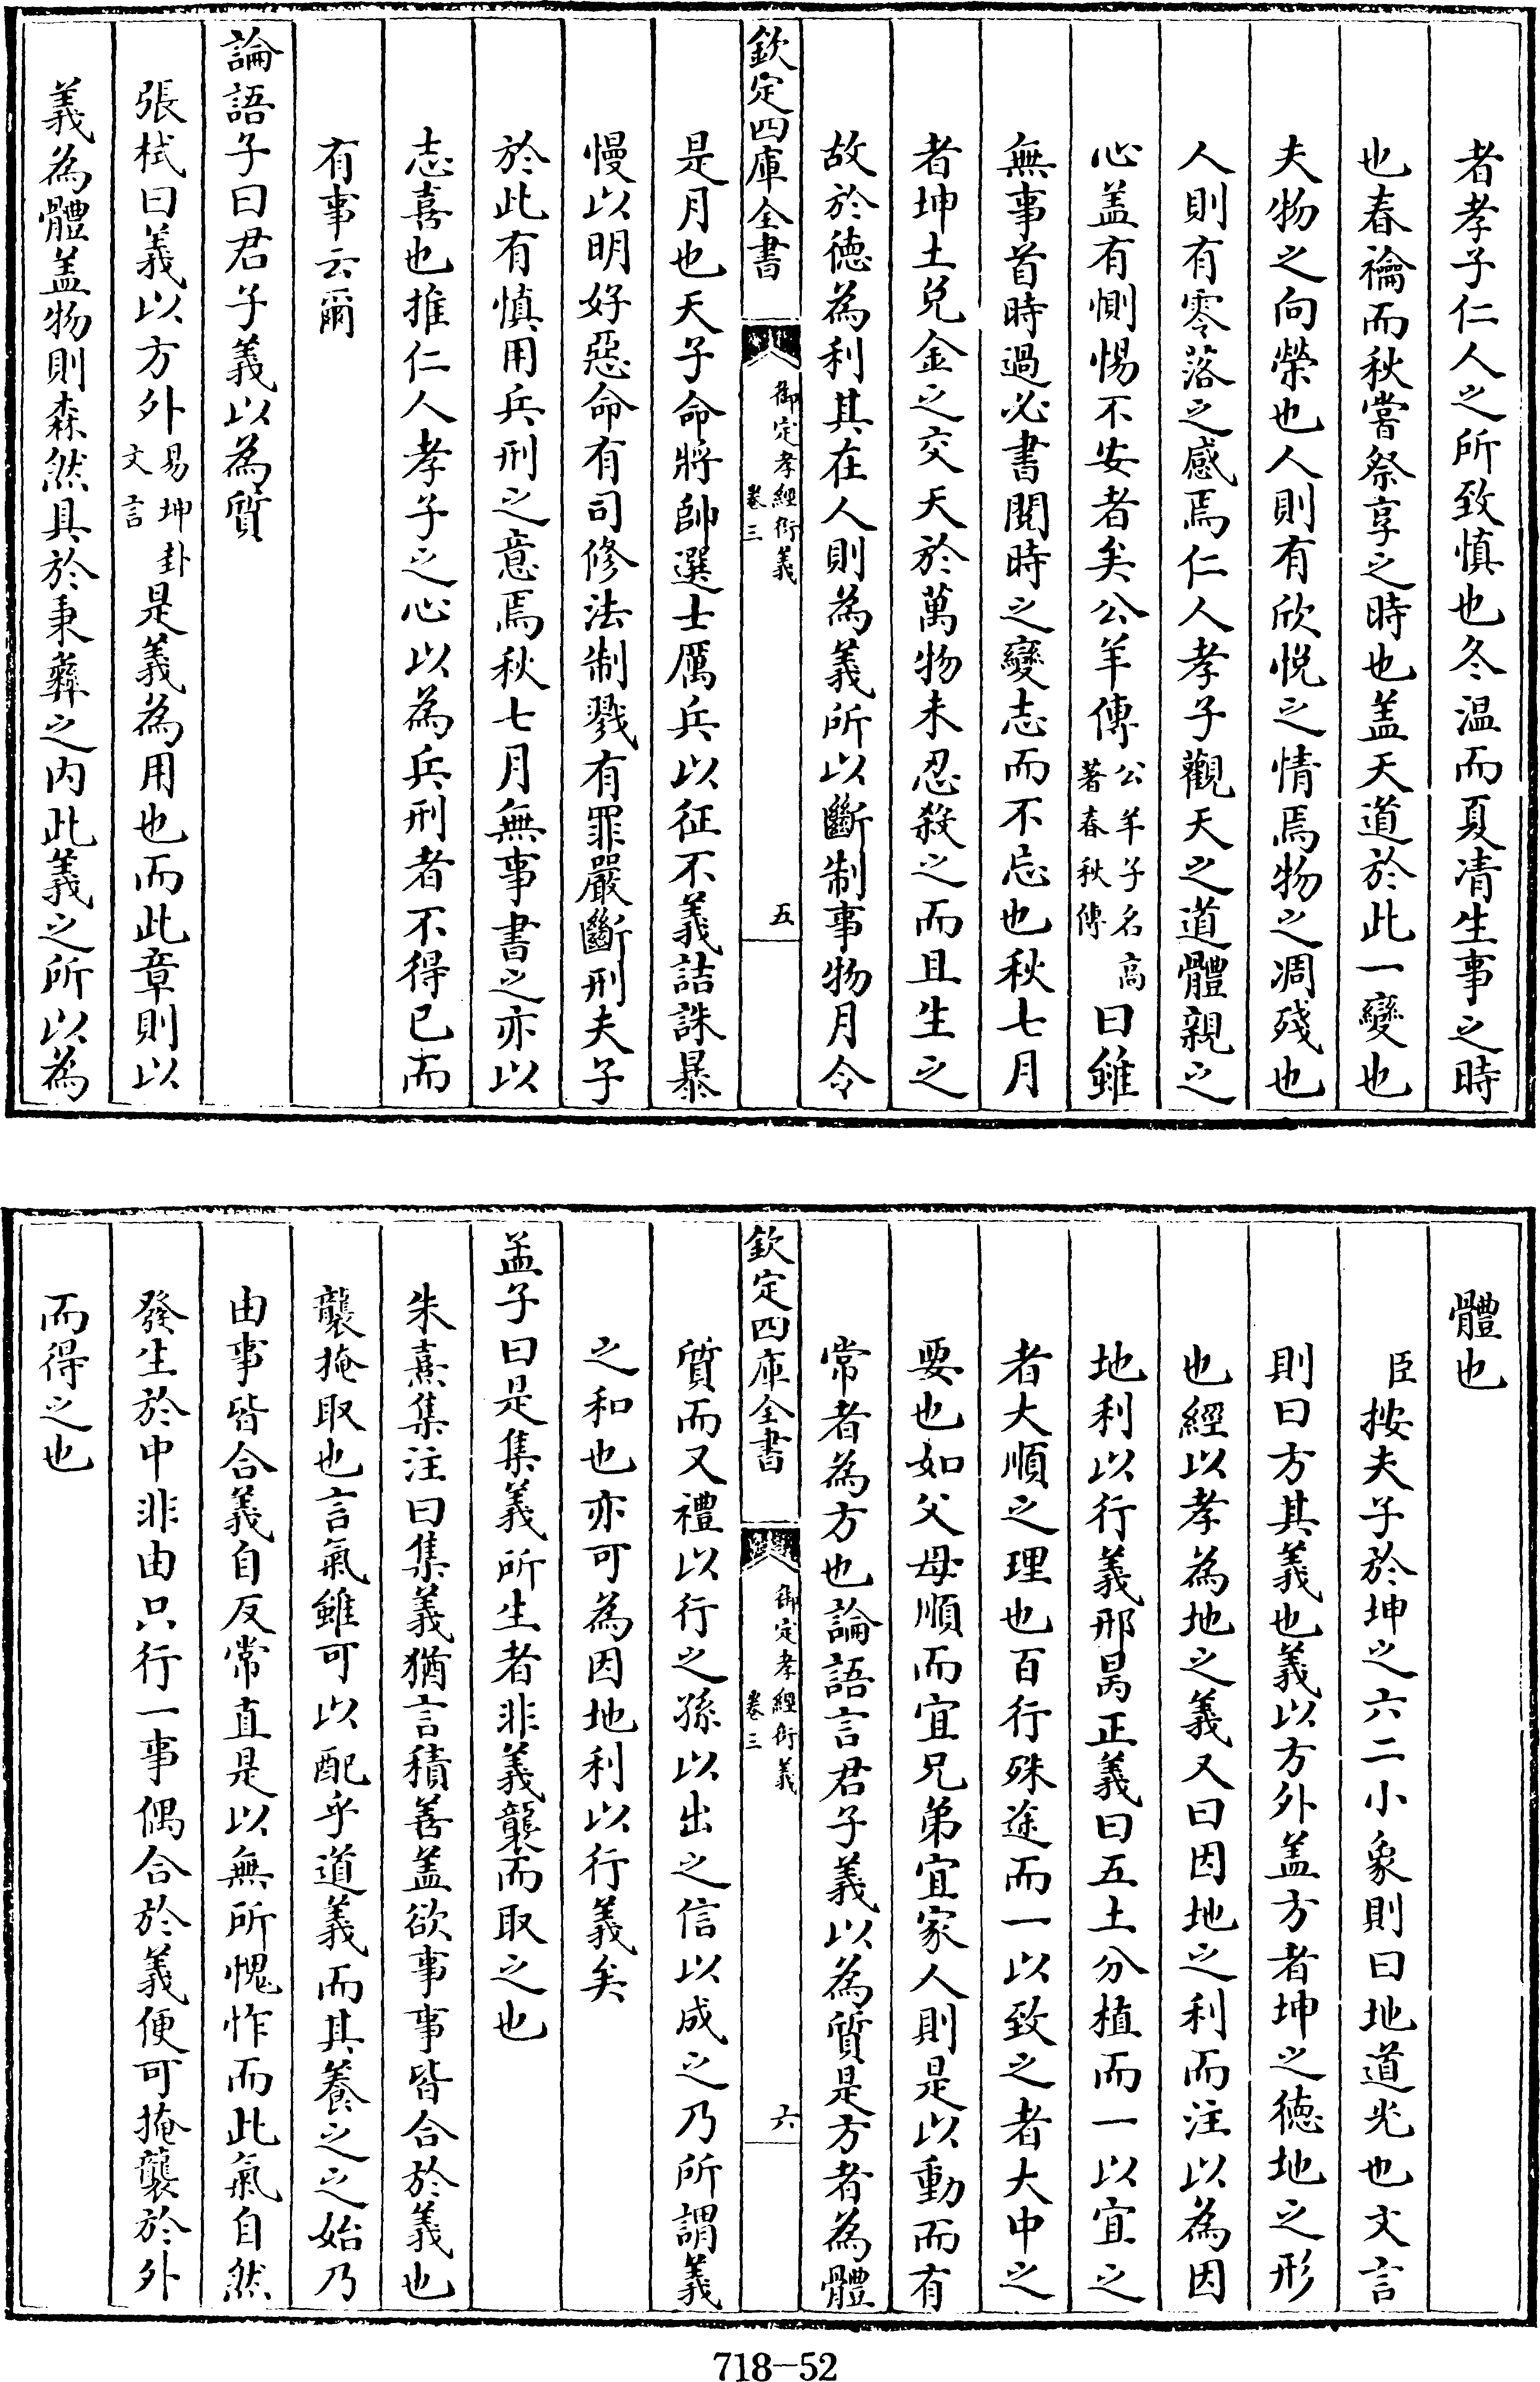 者孝子仁人之所致慎也冬温而夏凊生事之時
也春禴而秋嘗祭享之時也盖天道於此一變也
夫物之向榮也人則有欣悦之情焉物之凋殘也
人則有零落之感焉仁人孝子觀天之道體親之
心盖有惻惕不安者矣公羊傳公羊子名高著春秋傳曰雖
無事首時過必書閱時之變志而不忘也秋七月
者坤土兌金之交天於萬物未忍殺之而且生之
故於德為利其在人則為義所以斷制事物月令
欽定四庫全書
御定孝經衍義
卷三
五
是月也天子命將帥選士厲兵以征不義詰誅暴
慢以明好惡命有司修法制戮有罪嚴斷刑夫子
於此有慎用兵刑之意焉秋七月無事書之亦以
志喜也推仁人孝子之心以為兵刑者不得已而
有事云爾
論語子曰君子義以為質
張栻曰義以方外易坤卦文言是義為用也而此章則以
義為體盖物則森然具於秉彝之内此義之所以為
體也
臣按夫子於坤之六二小象則曰地道光也文言
則曰方其義也義以方外盖方者坤之德地之形
也經以孝為地之義又曰因地之利而注以為因
地利以行義邢昺正義曰五土分植而一以宜之
者大順之理也百行殊途而一以致之者大中之
要也如父母順而宜兄弟宜家人則是以動而有
常者為方也論語言君子義以為質是方者為體
欽定四庫全書
御定孝經衍義
卷三
六
質而又禮以行之孫以出之信以成之乃所謂義
之和也亦可為因地利以行義矣
孟子曰是集義所生者非義襲而取之也
朱熹集注曰集義猶言積善盖欲事事皆合於義也
襲掩取也言氣雖可以配乎道義而其養之之始乃
由事皆合義自反常直是以無所愧怍而此氣自然
發生於中非由只行一事偶合於義便可掩襲於外
而得之也
718-52